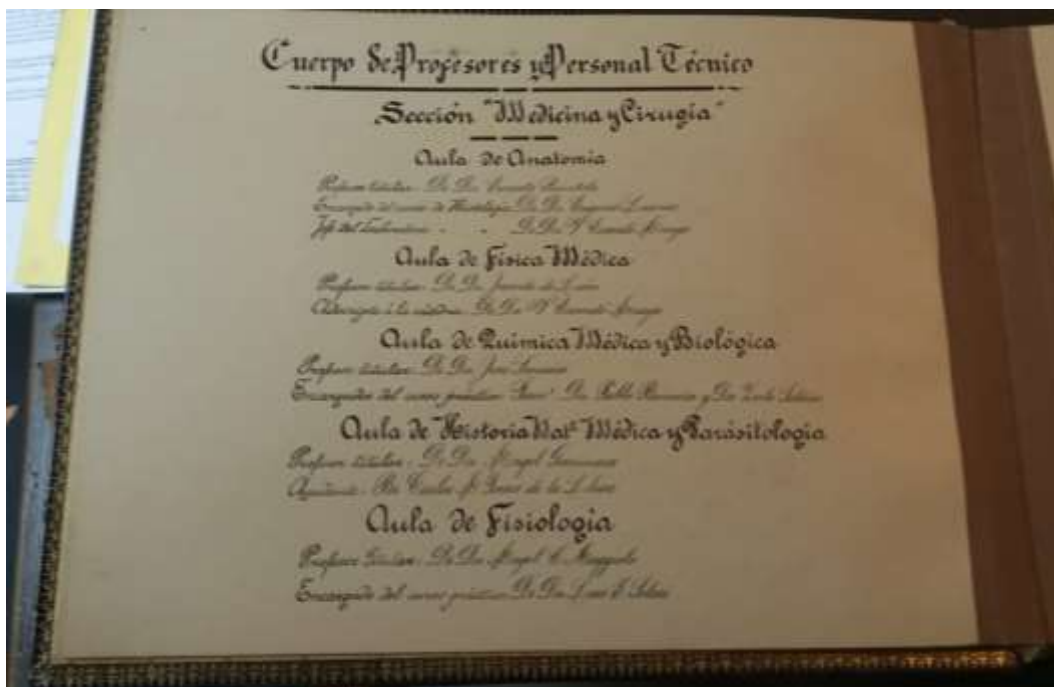 Cuerpo de Profesores y Personal Técnico
Sección "Medicina y Cirugía"
Aula de Anatomia
Profesor titular: Dr Dn Ernesto
Encargado del curso de Histología: Dr Dn Eugenio
Jefe del Laboratorio - - Dr Dn Ernesto
Aula de Física Médica
Profesor titular: Dr Dn Jacinto de León
á la cátedra: Dr Dn Ernesto
Aula de Quimica Médica y Biológica
Profesor titular: Dr Dn José
Encargados del curso práctico: Dn Pablo y Dn
Aula de Historia Natl Médica y Parásitologia
Profesor titular: Dr Dn Angel
Ayudante: Carlos de la
Aula de Fisiologia
Profesor titular: Dr Dn Angel C. Maggiolo
Encargado del curso práctico: Dr Dn Luis